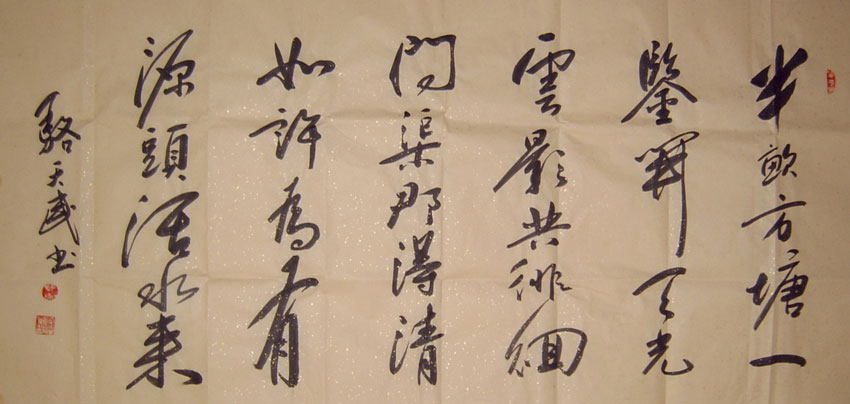 半畝方塘一
鑒開天光
雲影共徘徊
問渠那得清
如許為有
源頭活水来
駱天武书